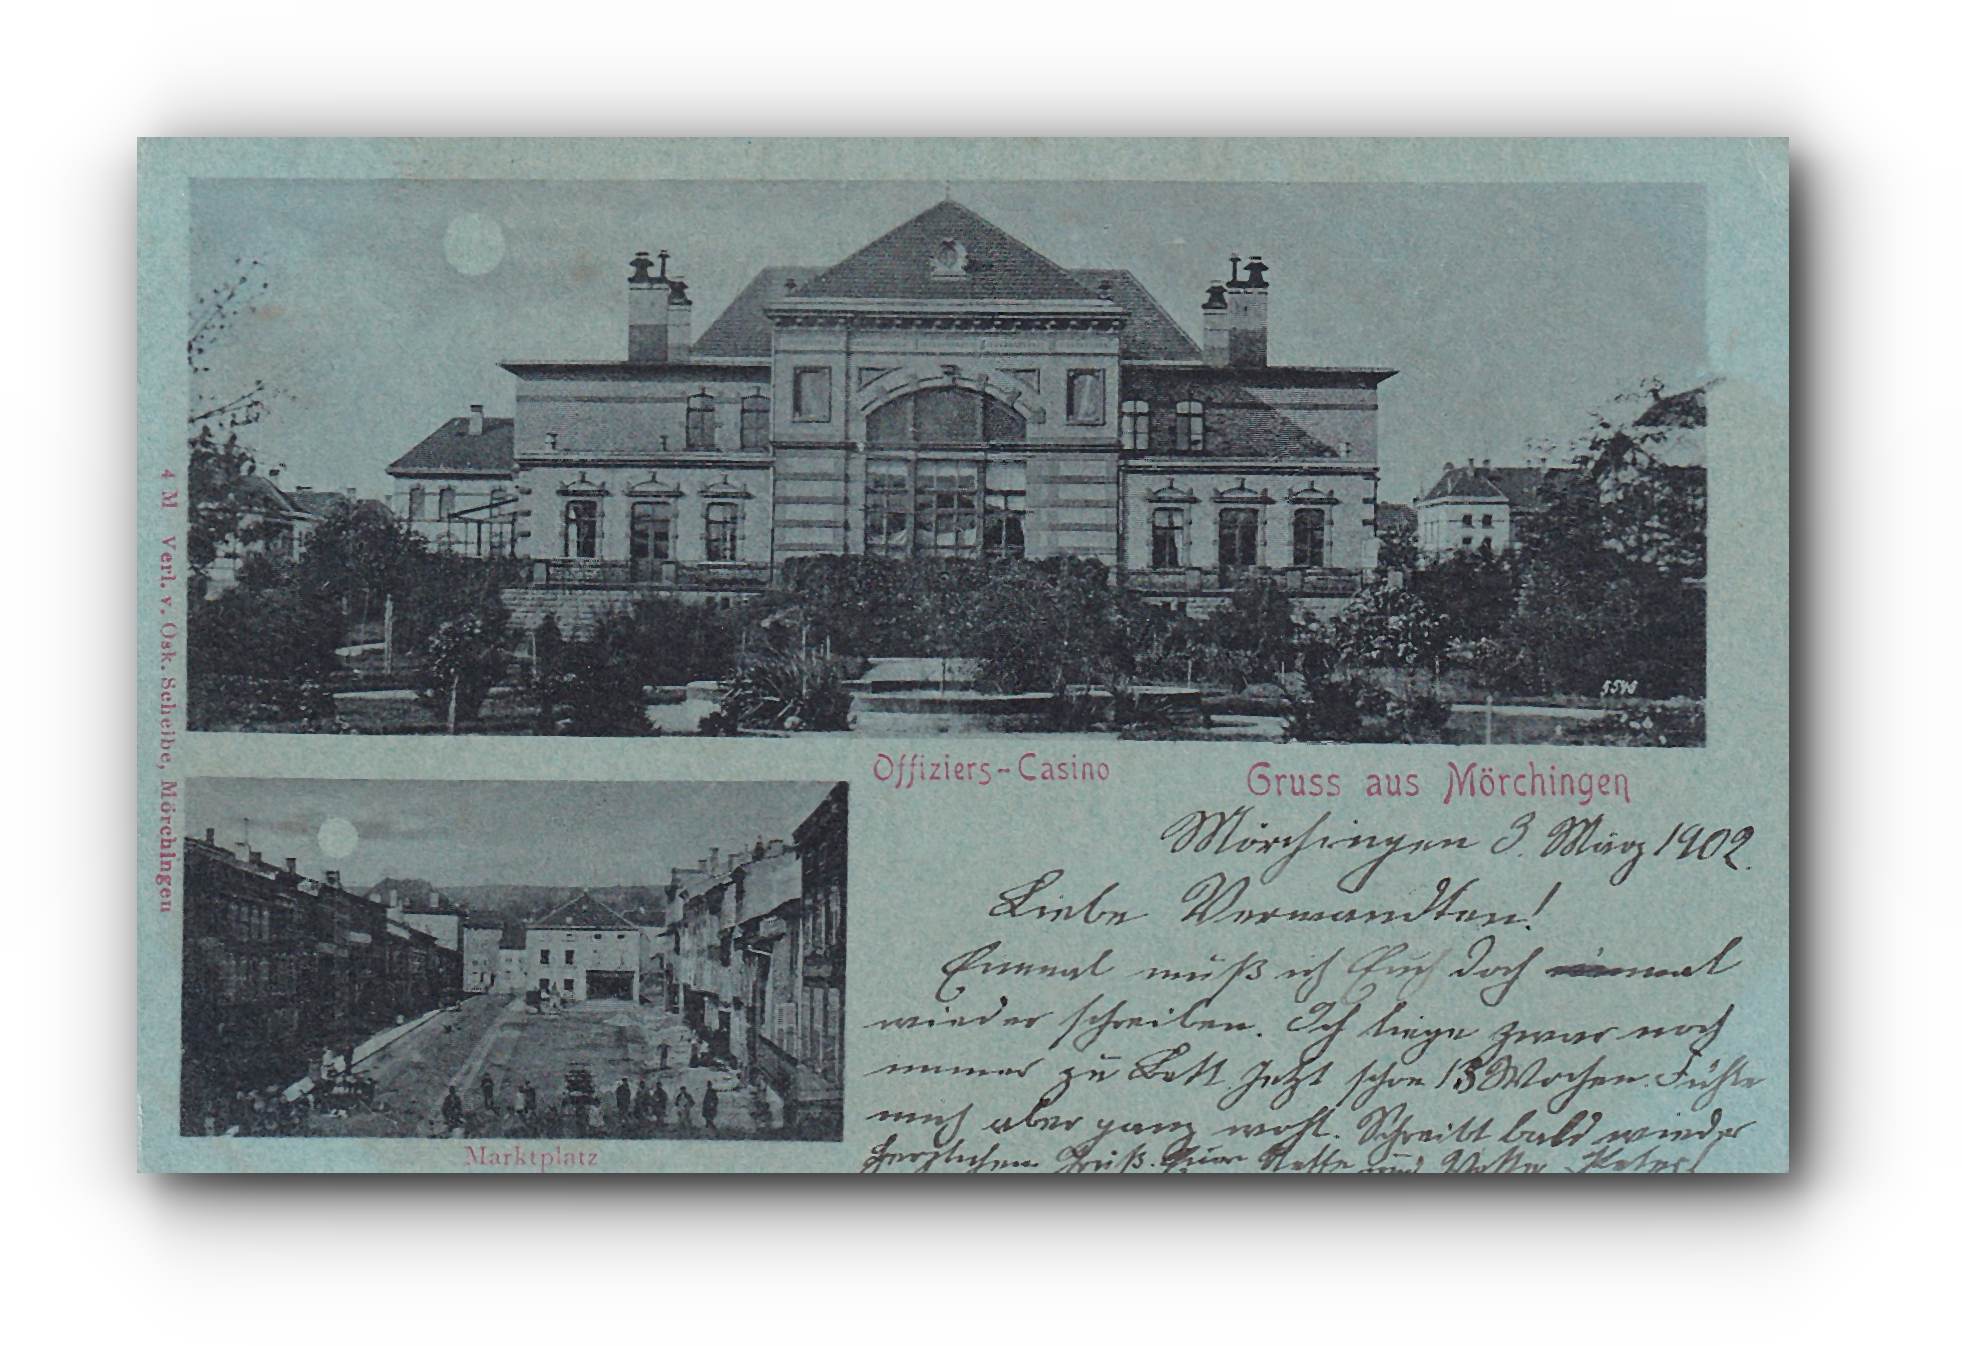 5548
Offiziers-Casino
Gruss aus Mörchingen
4 M Verl. v. Osk. Scheibe, Mörchingen
Marktplatz
Mörchingen 3. März 1902.
Liebe Verwandten!
Einmal muß ich Euch doch
wieder schreiben. Ich liege zwar noch
immer zu Bett. Jetzt schon 13 Wochen. Fühle
mich aber ganz wohl. Schreibt bald wieder
Herzlichen Gruß. Euer Neffe und Vetter Peter